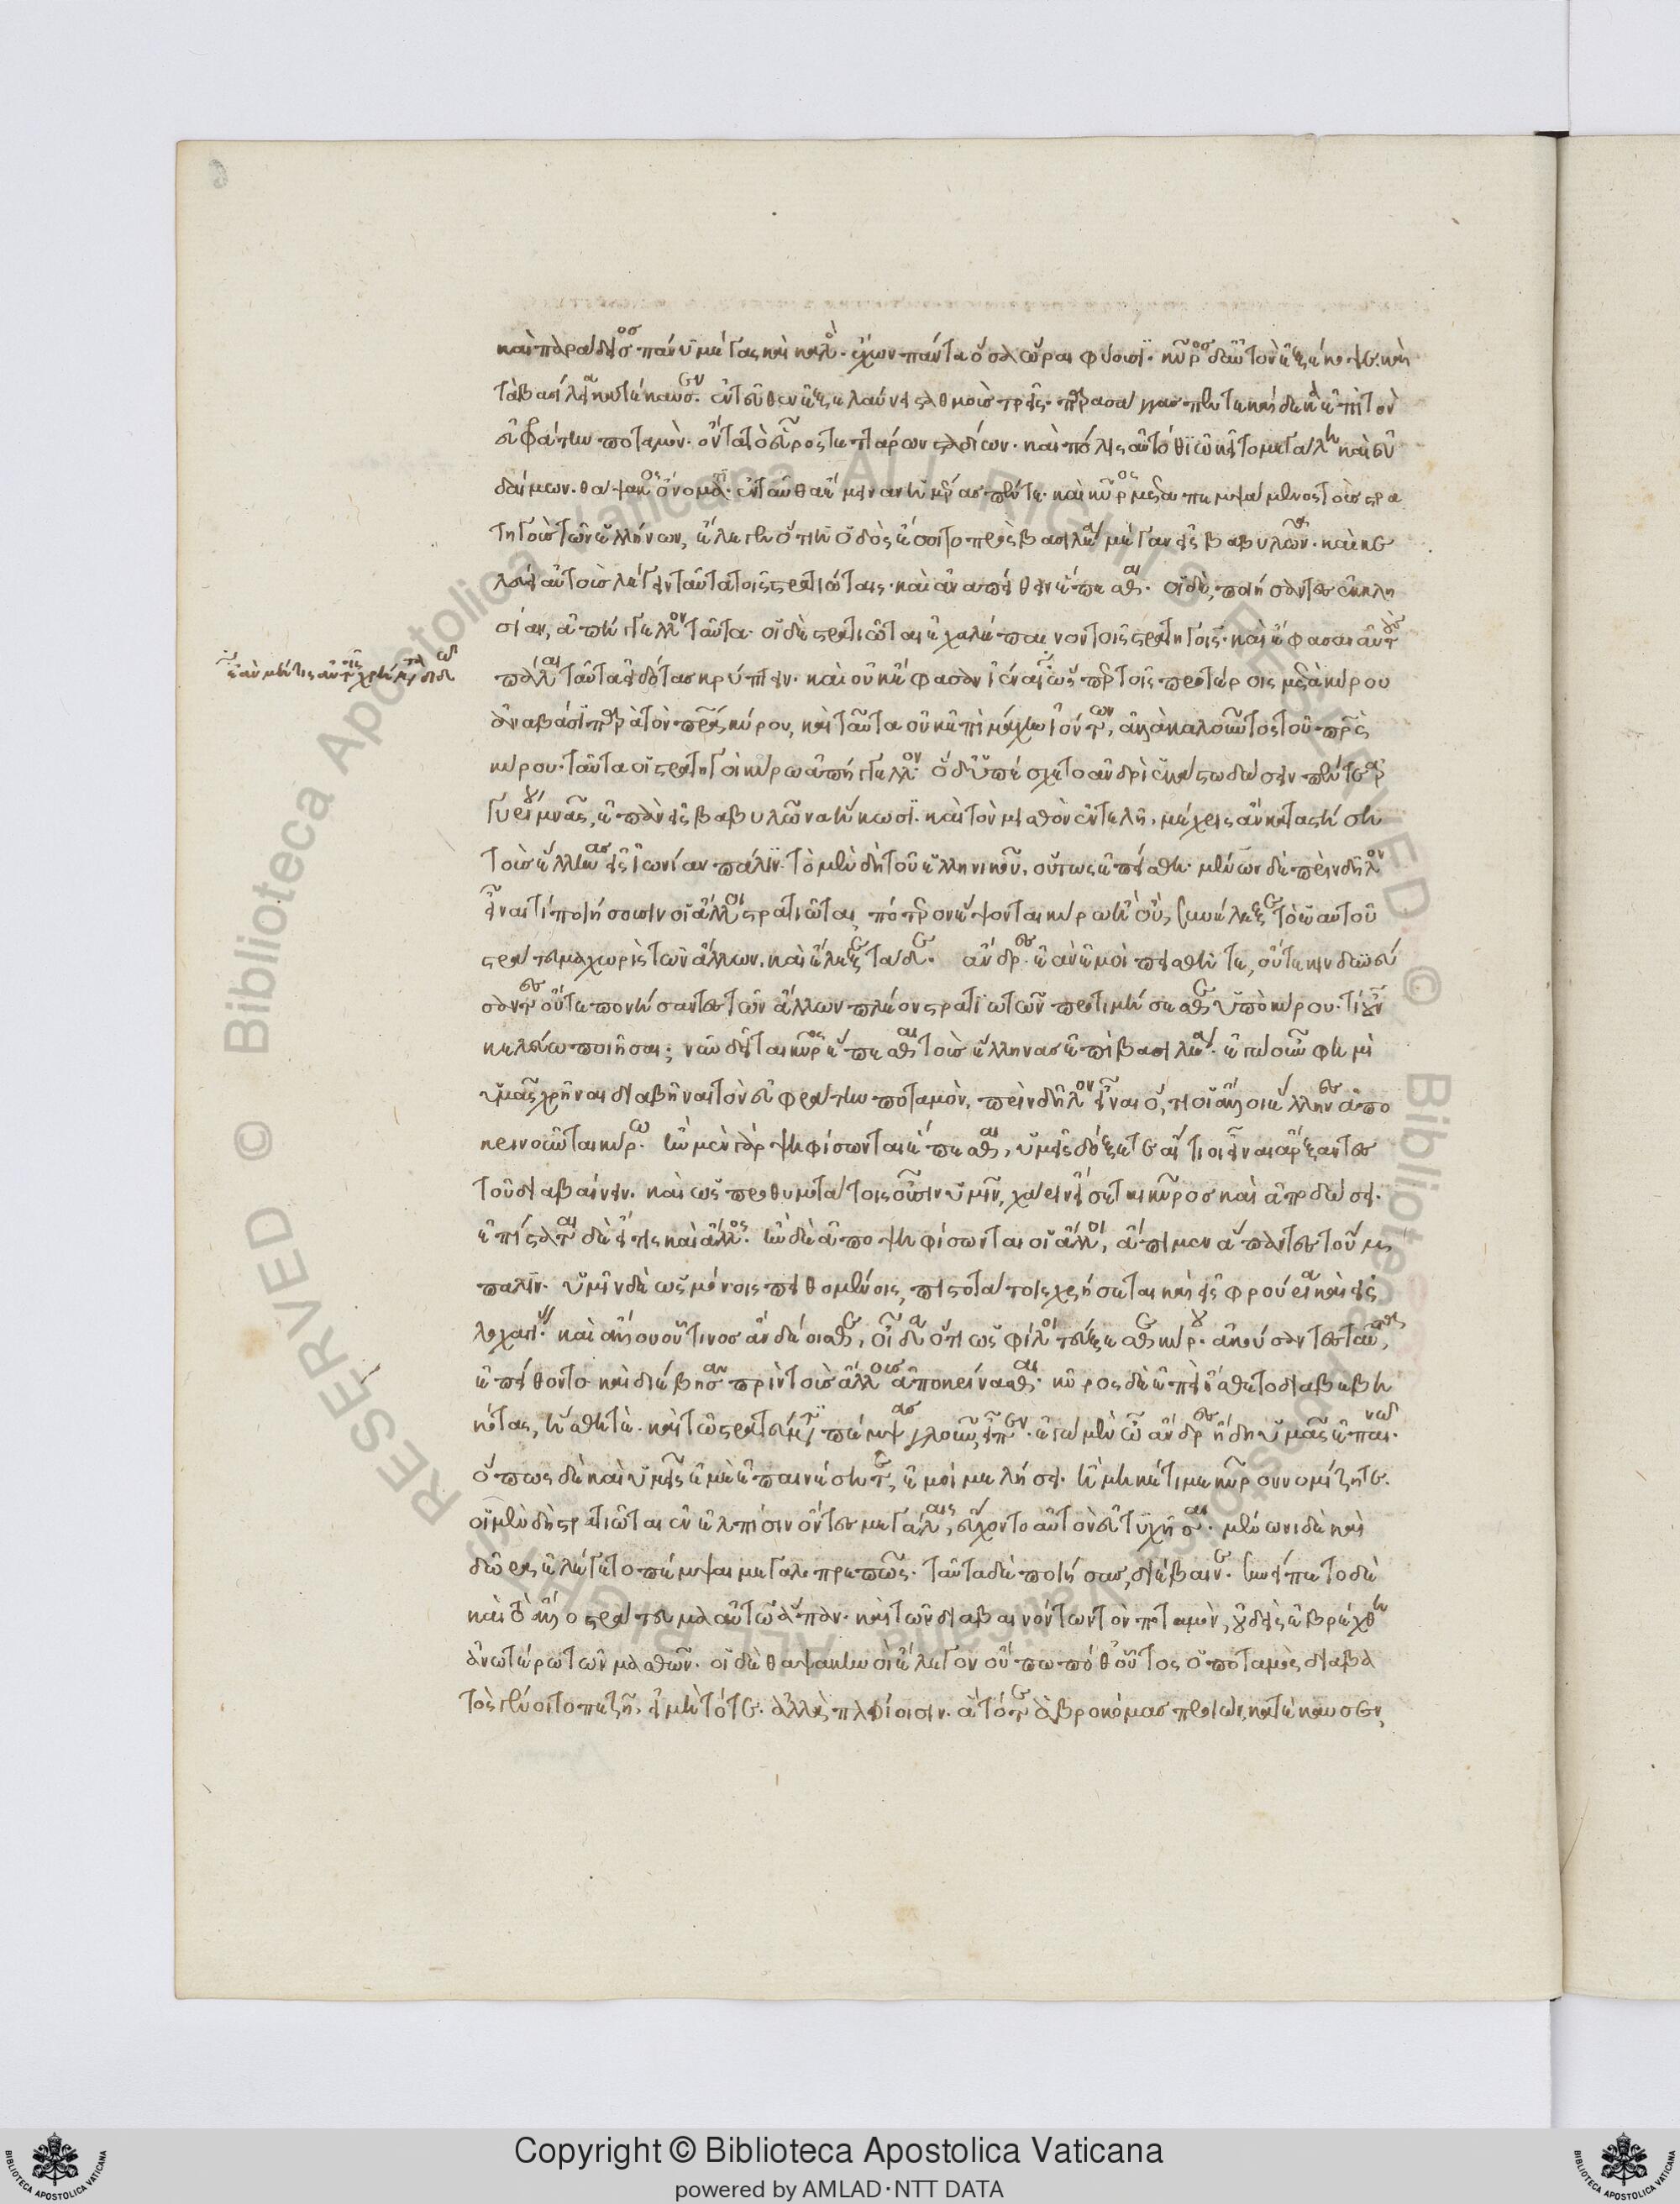 καὶ παράδεισος πάνυ μέγας καὶ καλὸς. ἔχων πάντα ὅσα ὧραι φύουσι. κῦρος δ' αὐτὸν ἐξέκοψε. καὶ
τὰ βασίλεια κατέκαυσεν. ἐντεῦθεν ἐξελαύνει σταθμοὺς τρεῖς. παρασάγγας πεντεκαίδεκα ἐπὶ τὸν
εὐφράτην ποταμὸν. ὄντα τὸ εὖρος τεττάρων σταδίων. καὶ πόλις αὐτόθι ὠκεῖτο μεγάλη καὶ εὐ
δαίμων. θάψακος ὄνομα. ἐνταῦθα ἔμειναν ἡμέρας πέντε. καὶ κῦρος μεταπεμψάμενος τοὺς στρα
τηγοὺς τῶν ἑλλήνων, ἔλεγεν ὅτι ἡ ὁδὸς ἔσοιτο πρὸς βασιλέα μέγαν εἰς βαβυλῶνα. καὶ κε
λεύει αὐτοὺς λέγειν ταῦτα τοῖς στρατιώταις. καὶ ἀναπείθειν ἕπεσθαι. οἱ δὲ, ποιήσαντες ἐκκλη
σίαν, ἀπήγγελλον ταῦτα. οἱ δὲ στρατιῶται ἐχαλέπαινον τοῖς στρατηγοῖς. καὶ ἔφασαν αὐτοὺς
ἐὰν μή τις αὐτοῖς χρήματα διδῶ
πάλαι ταῦτα εἰδότας κρύπτειν. καὶ οὐκ ἔφασαν ἰέναι ὥσπερ τοῖς προτέροις μετὰ κύρου
ἀναβᾶσι παρὰ τὸν πατέρα κύρου, καὶ ταῦτα οὐκ ἐπὶ μάχην ἰόντων, ἀλλὰ καλοῦντος τοῦ πατρὸς
κύρου. ταῦτα οἱ στρατηγοὶ κύρω ἀπήγγελλον. ὁ δ' ὑπέσχετο ἀνδρὶ ἑκάστω δώσειν πέντε ἀρ
γυρίου μνᾶς, ἐπὰν εἰς βαβυλῶνα ἥκωσι. καὶ τὸν μισθὸν ἐντελῆ, μέχρις ἂν καταστήση
τοὺς ἕλληνας εἰς ἰωνίαν πάλιν. τὸ μὲν δὴ τοῦ ἑλληνικοῦ, οὕτως ἐπείσθη. μένων δὲ πρὶν δῆλον
εἶναι τί ποιήσουσιν οἱ ἄλλοι στρατιῶται, πότερον ἕψονται κύρω ἢ οὐ, συνέλεξε τὸ ἑαυτοῦ
στράτευμα χωρὶς τῶν ἄλλων. καὶ ἔλεξε τάδε. ἄνδρες ἐὰν ἐμοὶ πεισθῆτε, οὔτε κινδυνεύ
σαντες οὔτε πονήσαντες τῶν ἄλλων πλέον στρατιωτῶν προτιμήσεσθε ὑπὸ κύρου. τί οὖν
κελεύω ποιῆσαι; νῦν δεῖται κῦρος ἕπεσθαι τοὺς ἕλληνας ἐπὶ βασιλέα. ἐγὼ οὖν φημὶ
ὑμᾶς χρῆναι διαβῆναι τὸν εὐφράτην ποταμὸν, πρὶν δῆλον εἶναι ὅ,τι οἱ ἄλλοι ἕλληνες ἀπο
κρινοῦνται κύρω. ἢν μὲν γὰρ ψηφίσωνται ἕπεσθαι, ὑμεῖς δόξετε αἴτιοι εἶναι ἄρξαντες
τοῦ διαβαίνειν. καὶ ὡς προθυμοτάτοις οὖσιν ὑμῖν, χάριν εἴσεται κῦρος καὶ ἀποδώσει.
ἐπίσταται δὲ εἴ τις καὶ ἄλλος. ἢν δὲ ἀποψηφίσωνται οἱ ἄλλοι, ἄπιμεν ἅπαντες τοὔμ
παλιν. ὑμῖν δὲ ὡς μόνοις πειθομένοις, πιστοτάτοις χρήσεται καὶ εἰς φρούρια καὶ εἰς
λοχαγίας. καὶ ἄλλου οὗτινος ἂν δέησθε, οἶδα ὅτι ὡς φίλοι τεύξεσθε κύρου. ἀκούσαντες ταῦτα,
ἐπείθοντο καὶ διέβησαν πρὶν τοὺς ἄλλους ἀποκρίνασθαι. κῦρος δὲ ἐπεὶ ἤσθετο διαβεβη
κότας, ἥσθη τε. καὶ τῶ στρατεύματι πέμψας γλοῦν, εἶπεν. ἐγὼ μὲν ὦ ἄνδρες ἤδη ὑμᾶς ἐπαινῶ.
ὅπως δὲ καὶ ὑμεῖς ἐμὲ ἐπαινέσητε, ἐμοὶ μελήσει. ἢ μηκέτι με κῦρον νομίζετε.
οἱ μὲν δὴ στρατιῶται ἐν ἐλπίσιν ὄντες μεγάλαις, εὔχοντο αὐτὸν εὐτυχῆσαι. μένωνι δὲ καὶ
δῶρα ἐλέγετο πέμψαι μεγαλοπρεπῶς. ταῦτα δὲ ποιήσας, διέβαινε. συνείπετο δὲ
καὶ τὸ ἄλλο στράτευμα αὐτῶ ἅπαν. καὶ τῶν διαβαινόντων τὸν ποταμὸν, οὐδεὶς ἐβρέχθη
ἀνωτέρω τῶν μασθῶν. οἱ δὲ θαψακηνοὶ ἔλεγον οὐ πώποθ' οὗτος ὁ ποταμὸς διαβα
τὸς γένοιτο πεζῆ, εἰ μὴ τότε. ἀλλὰ πλοίοισιν. ἃ τότε ἀβροκόμας προιὼν, κατέκαυσεν,